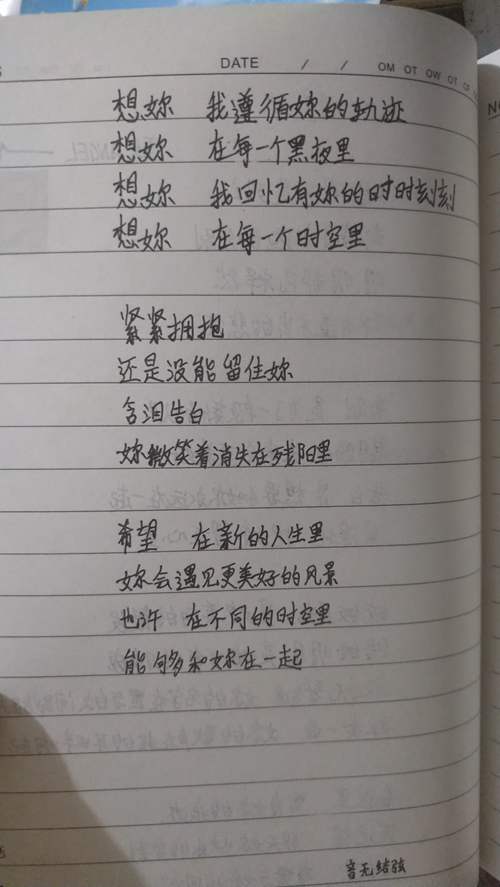 DATE / /
OM OT OW OT
想妳 我遵循妳的轨迹
想妳 在每一个黑夜里
想妳 我回忆有妳的时时刻刻
想妳 在每一个时空里
紧紧拥抱
还是没能留住妳
含泪告白
妳微笑着消失在残阳里
希望 在新的人生里
妳会遇见更美好的风景
也许 在不同的时空里
能够和妳在一起
音无结弦